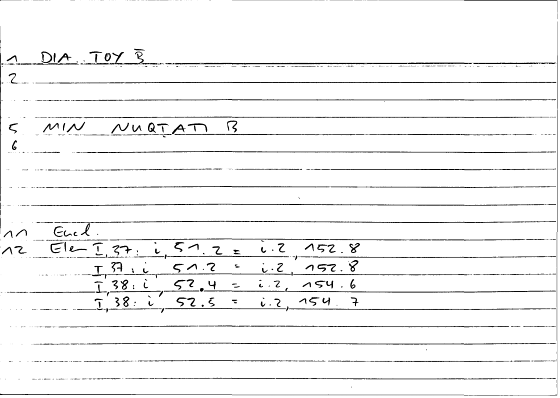 1 DIA TOY B̅
2
5 MIN NUQṬATI B
6
11 Eucl.
12 Elem I,37: i, 51.2 = i.2, 152.8
I,37: i, 51.2 = i.2, 152.8
I,38: i, 52.4 = i.2, 154.6
I,38: i, 52.5 = i.2, 154.7